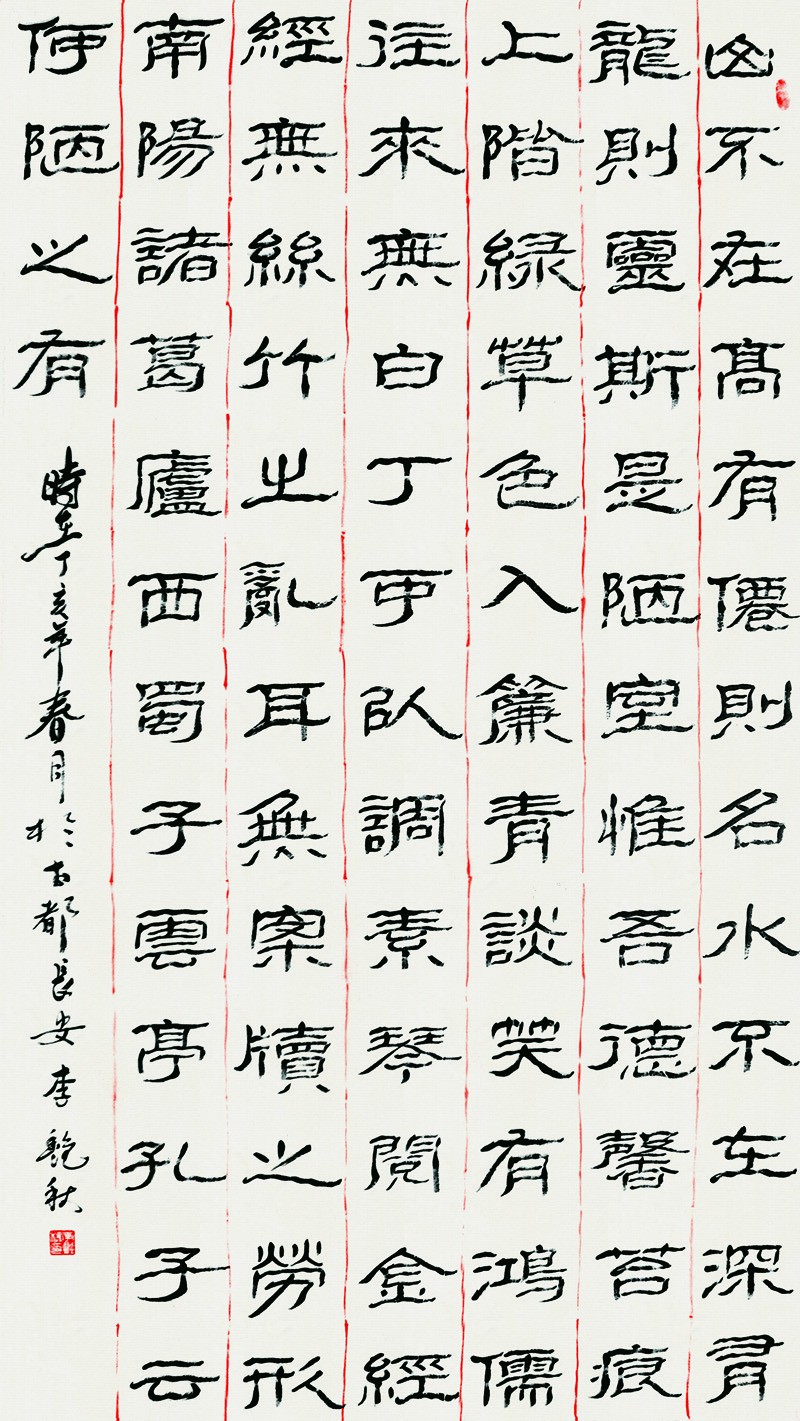 山不在髙有僊則名水不在深有
龍則靈斯是陋室惟吾德馨苔痕
上階緑草色入簾青談笑有鴻儒
往來無白丁可以調素琴閱金經
經無絲竹之亂耳無案牘之勞形
南陽諸葛廬西蜀子雲亭孔子云
何陋之有
時在丁亥年春月於古都長安李艷秋